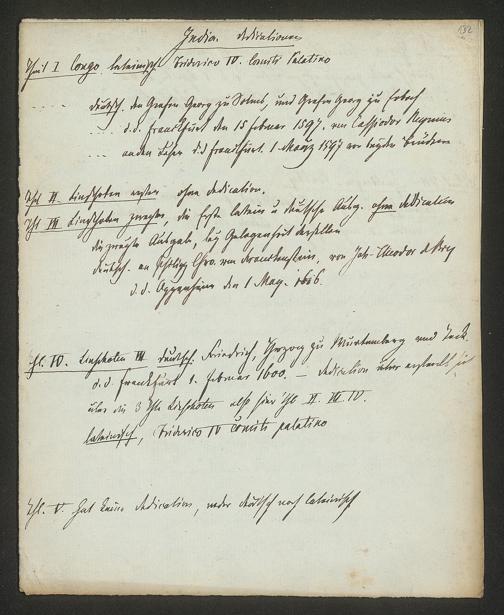 132
India. dedicationen
Theil I Congo. lateinisch Friderico IV. Comiti Palatino
deutsch. den Grafen Georg zu Solms, und Grafen Georg zu Erbach
d.d. Frankfurt den 15 Februar 1597. von Cassiodor Reinius
an den Leser d.d. Frankfurt. 1 März 1597 von beyden Brüdern
Thl II. Lindschoten erster ohne dedication.
Thl III Lindschoten zweyter, die Erste latein u deutsche Ausg. ohne dedication
die zweyte Ausgab, bey Gelegenheit derselben
deutsch. an von Franckenstein, von Joh: Theodor de Bry
d.d. Oppenheim den 1 May. 1616.
Thl. IV. Linschoten III deutsch. Friedrich, Herzog zu Würtemberg und Teck.
d.d. Frankfurt 1. Februar 1600. — dedication aber erstreckt sich
über die 3 Thle Lindschoten also hier Thl II. III IV.
lateinisch, Friderico IV Comiti palatino
Thl. V. hat keine dedication, weder deutsch noch lateinisch